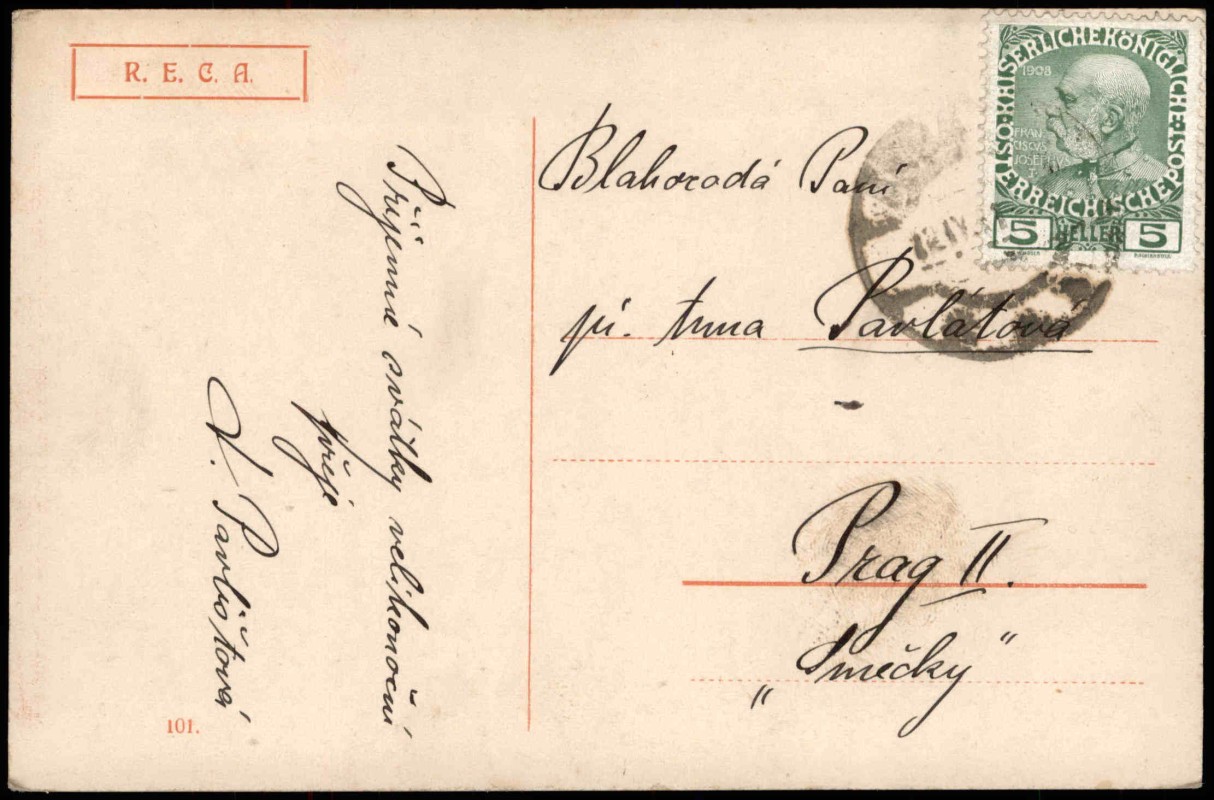 R. E. C. A.
Příjemné svátky velikonoční
přeje
Pavlištová
101.
KAISERLICHE KÖNIGLICHE
ÖSTERREICHISCHE POST
1908
FRAN
CISCVS
JOSEPHVS
I
5 HELLER 5
12 IV
Blahorodá Paní
pí. Anna Pavlátová
Prag II.
„Smečky"